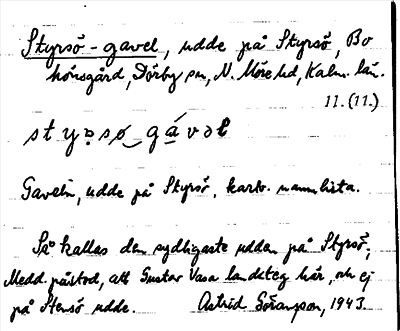 Styrsö-gavel, udde på Styrsö, Bo
hovsgård, Dörby sn, N. Möre hd, Kalm. län.
11.(11.)
styrsö gavəl
Gaveln, udde på Styrsö. karto. namnlista.
Så kallas den sydligaste udden på Styrsö.
Medd. påstod, att Gustav Vasa landsteg här, och ej
på Stensö udde. Astrid Göransson, 1943.